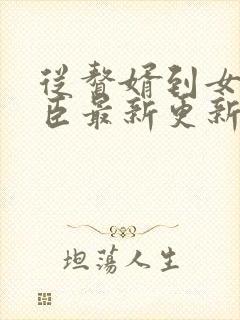 從贅婿到女
臣最新更新
坦蕩人生